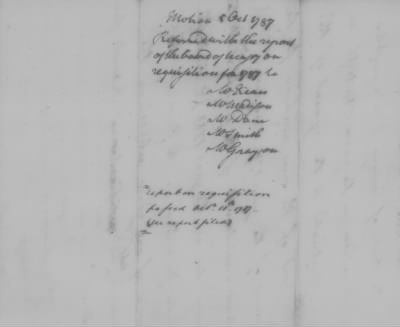 Motion 5 Oct 1787
Referred with the report
of the board of treasy on
requisition for 1787 to
Mr Kean
Mr Madison
Mr Dane
Mr Smith
Mr Grayson
report on requisition
passed Octr. 11th 1787.
See report filed